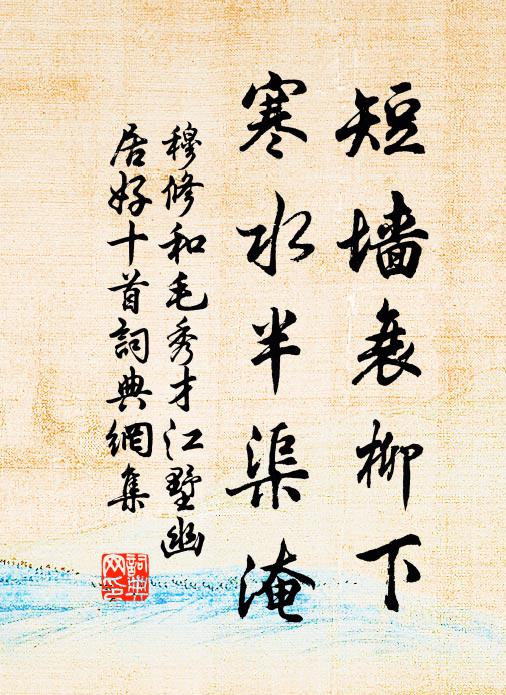 短墙衰柳下
寒水半渠淹
穆修和毛秀才江墅幽
居好十首詞典網集